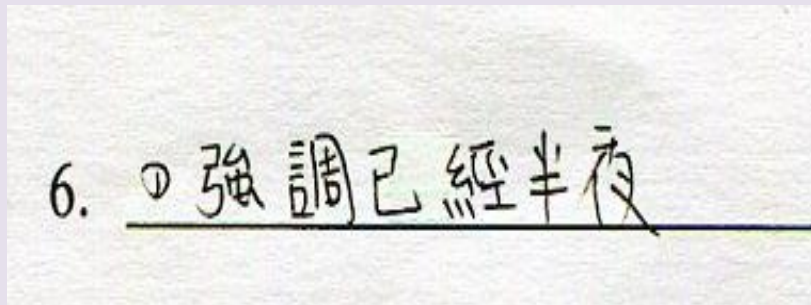 6. ①強調已經半夜